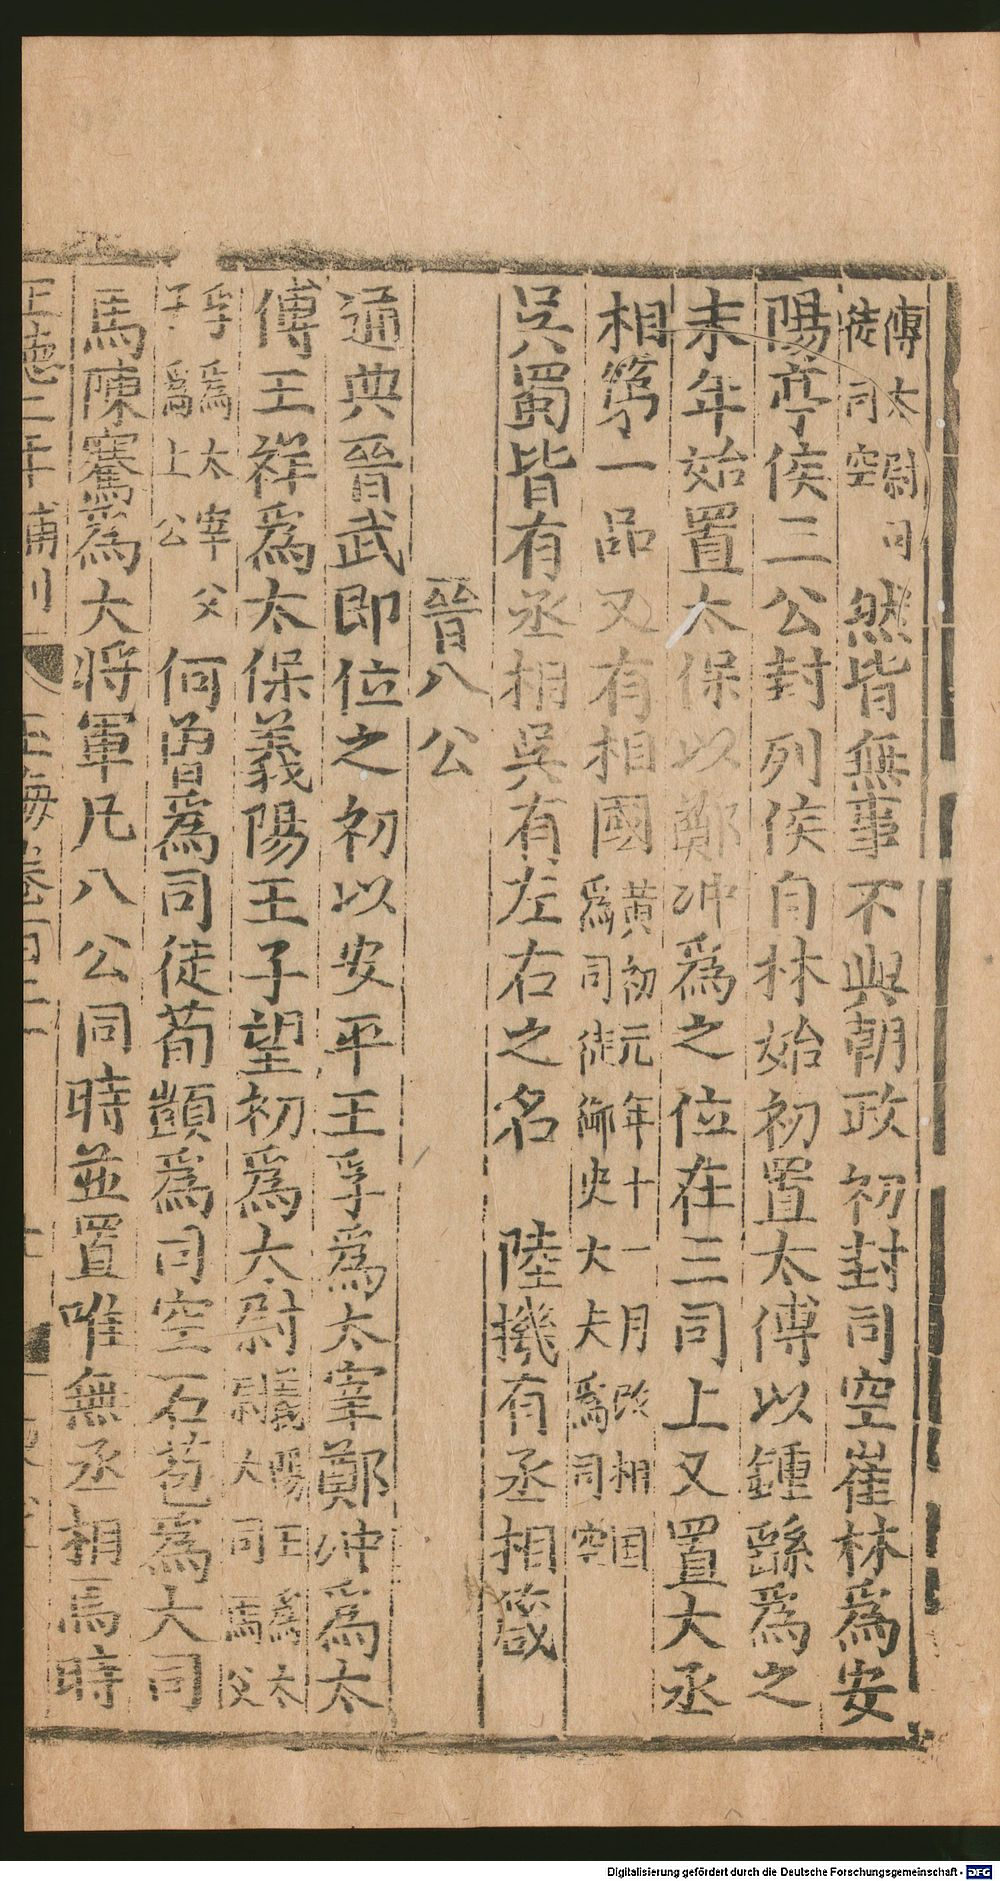 傅太尉司徒司空然皆無事不與朝政初封司空崔林為安
陽亭侯三公封列侯自林始初置太傅以鍾繇為之
末年始置太保以鄭冲為之位在三司上又置大丞
相第一品又有相國黃初元年十一月改相国為司徒御史大夫爲司空
吳蜀皆有丞相吳有左右之名 陸機有丞相箴
晉八公
通典晉武即位之初以安平王孚為太宰鄭冲為太
傅王祥為太保義陽王子望初為太尉義陽王為太尉大司馬父
孚為太宰父子為上公何曾為司徒荀顗為司空石苞為大司
馬陳騫為大將軍凡八公同時並置唯無丞相焉時
正德二年補刋 玉海卷百二十
Digitalisierung gefördert durch die Deutsche Forschungsgemeinschaft - DFG